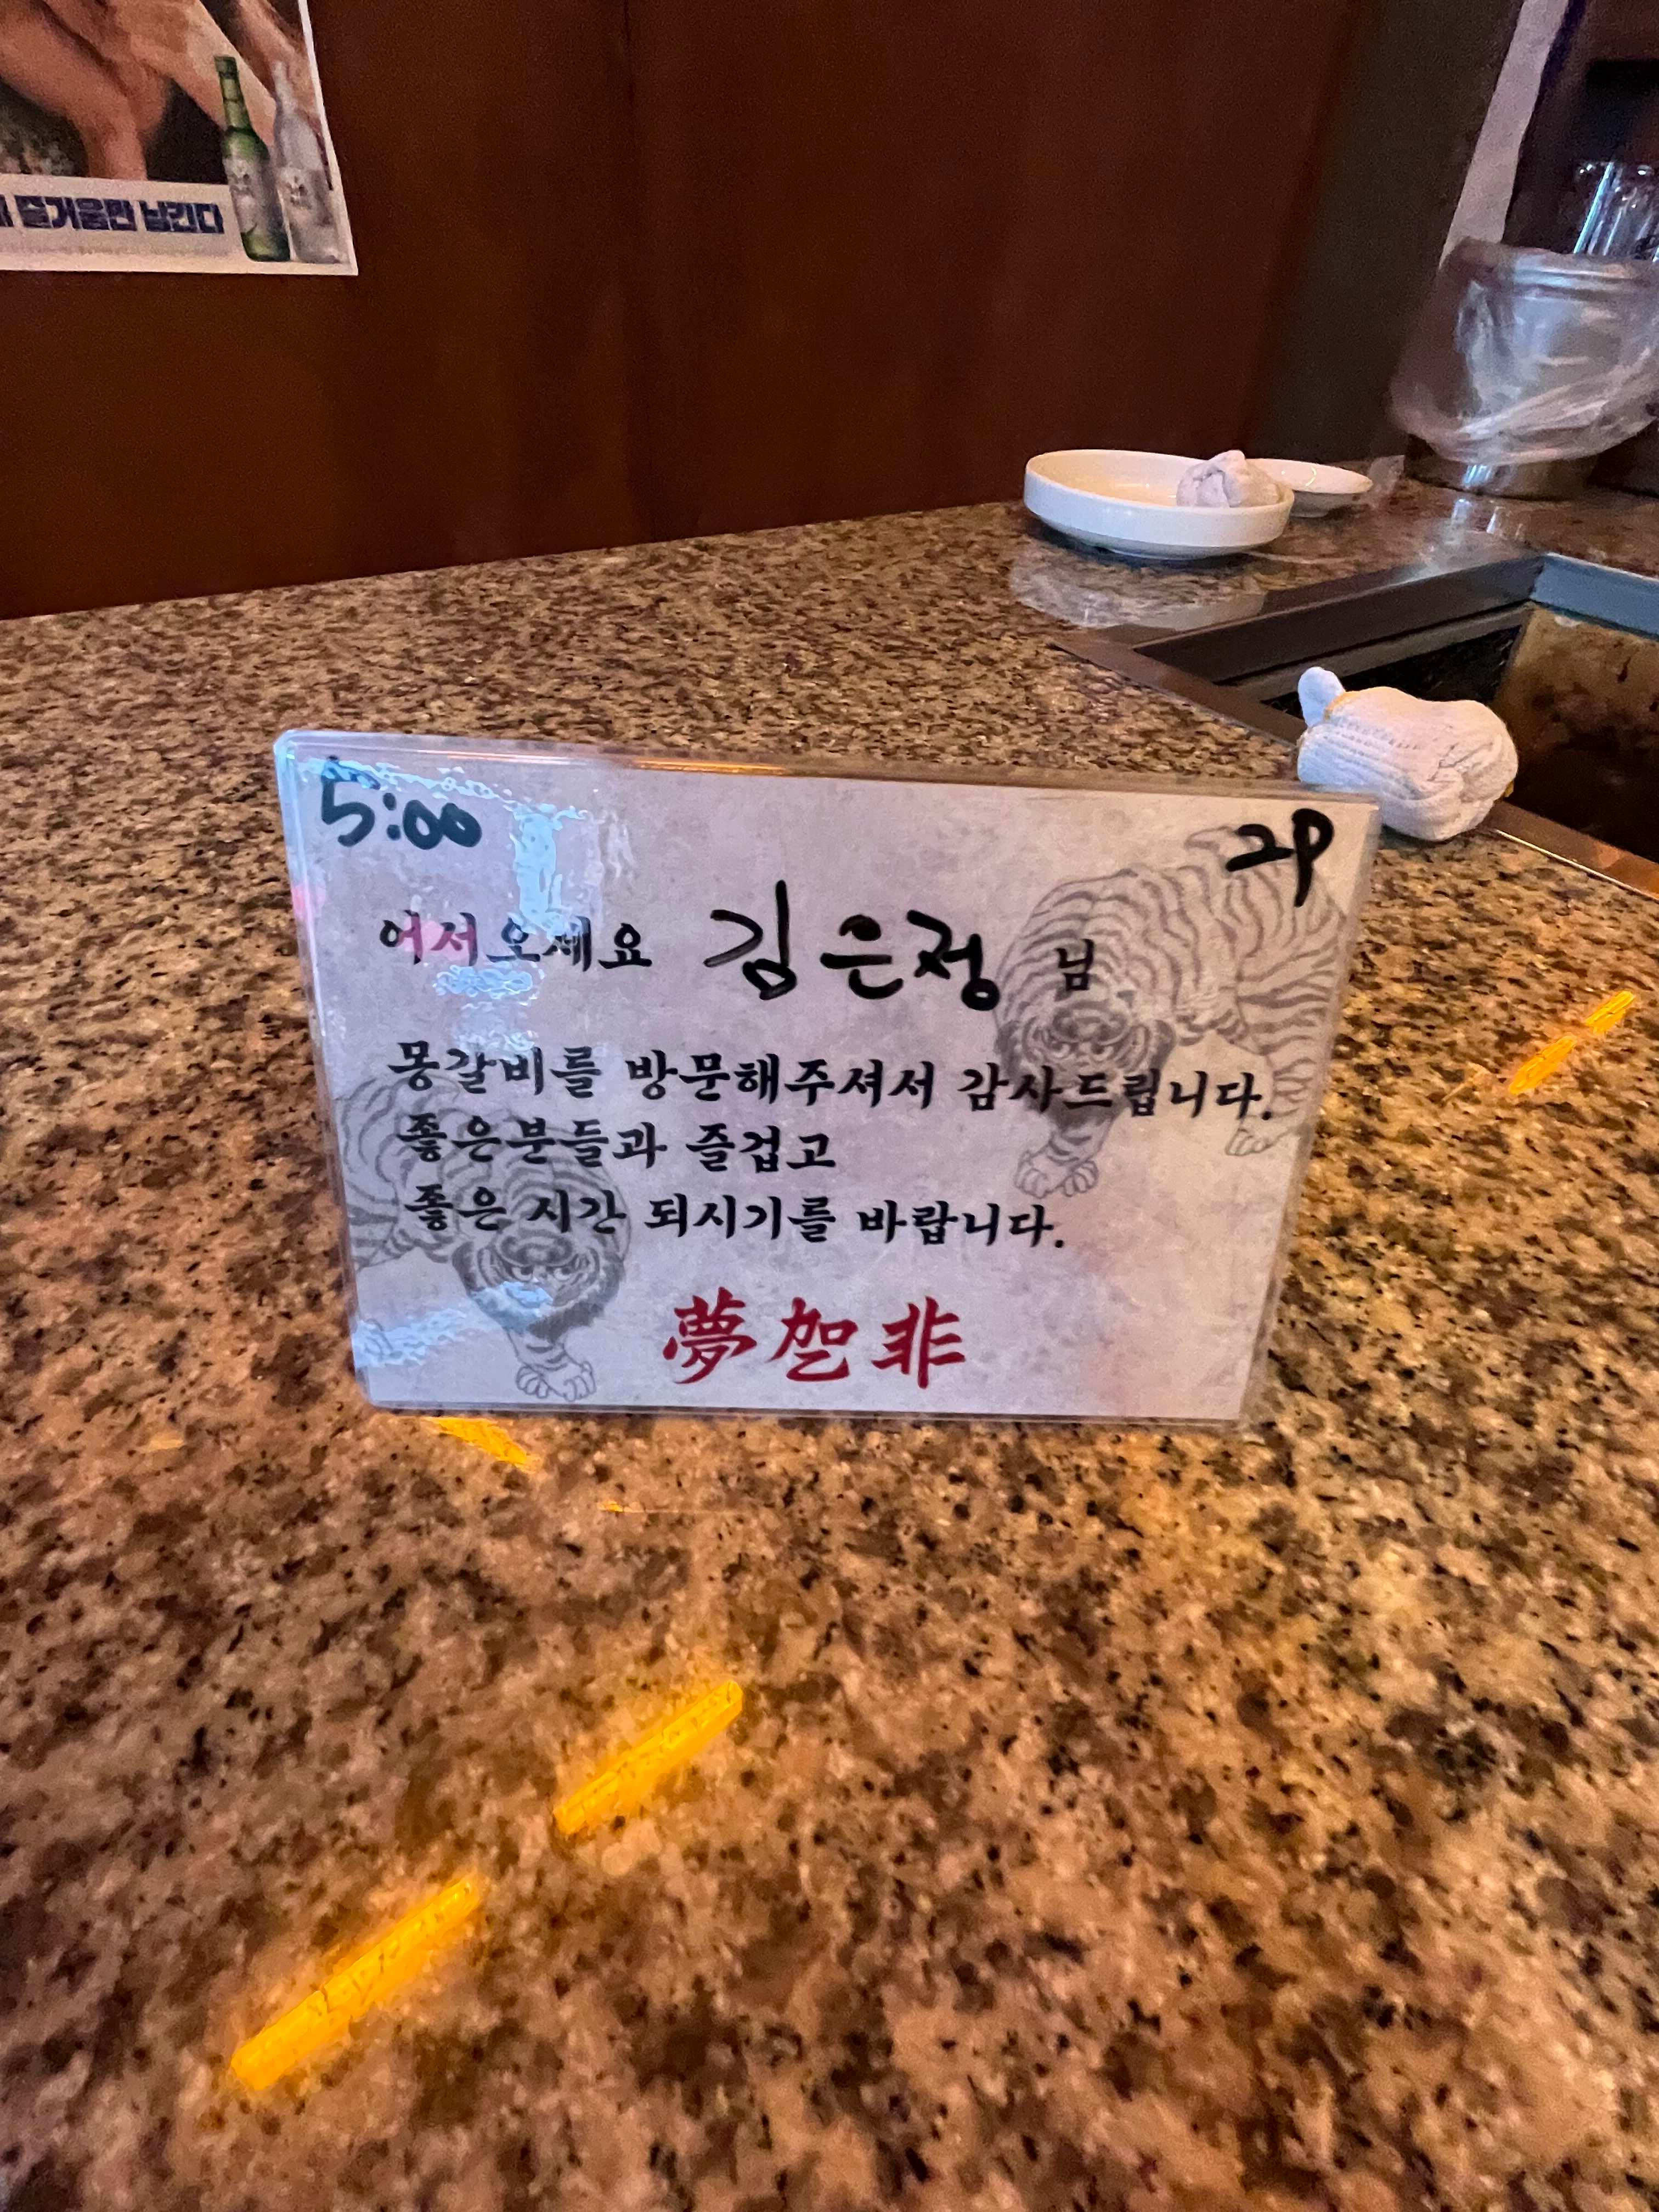 즐거움만 남긴다
5:00
2P
어서오세요 김은정 님
몽갈비를 방문해주셔서 감사드립니다.
좋은분들과 즐겁고
좋은 시간 되시기를 바랍니다.
夢乫非